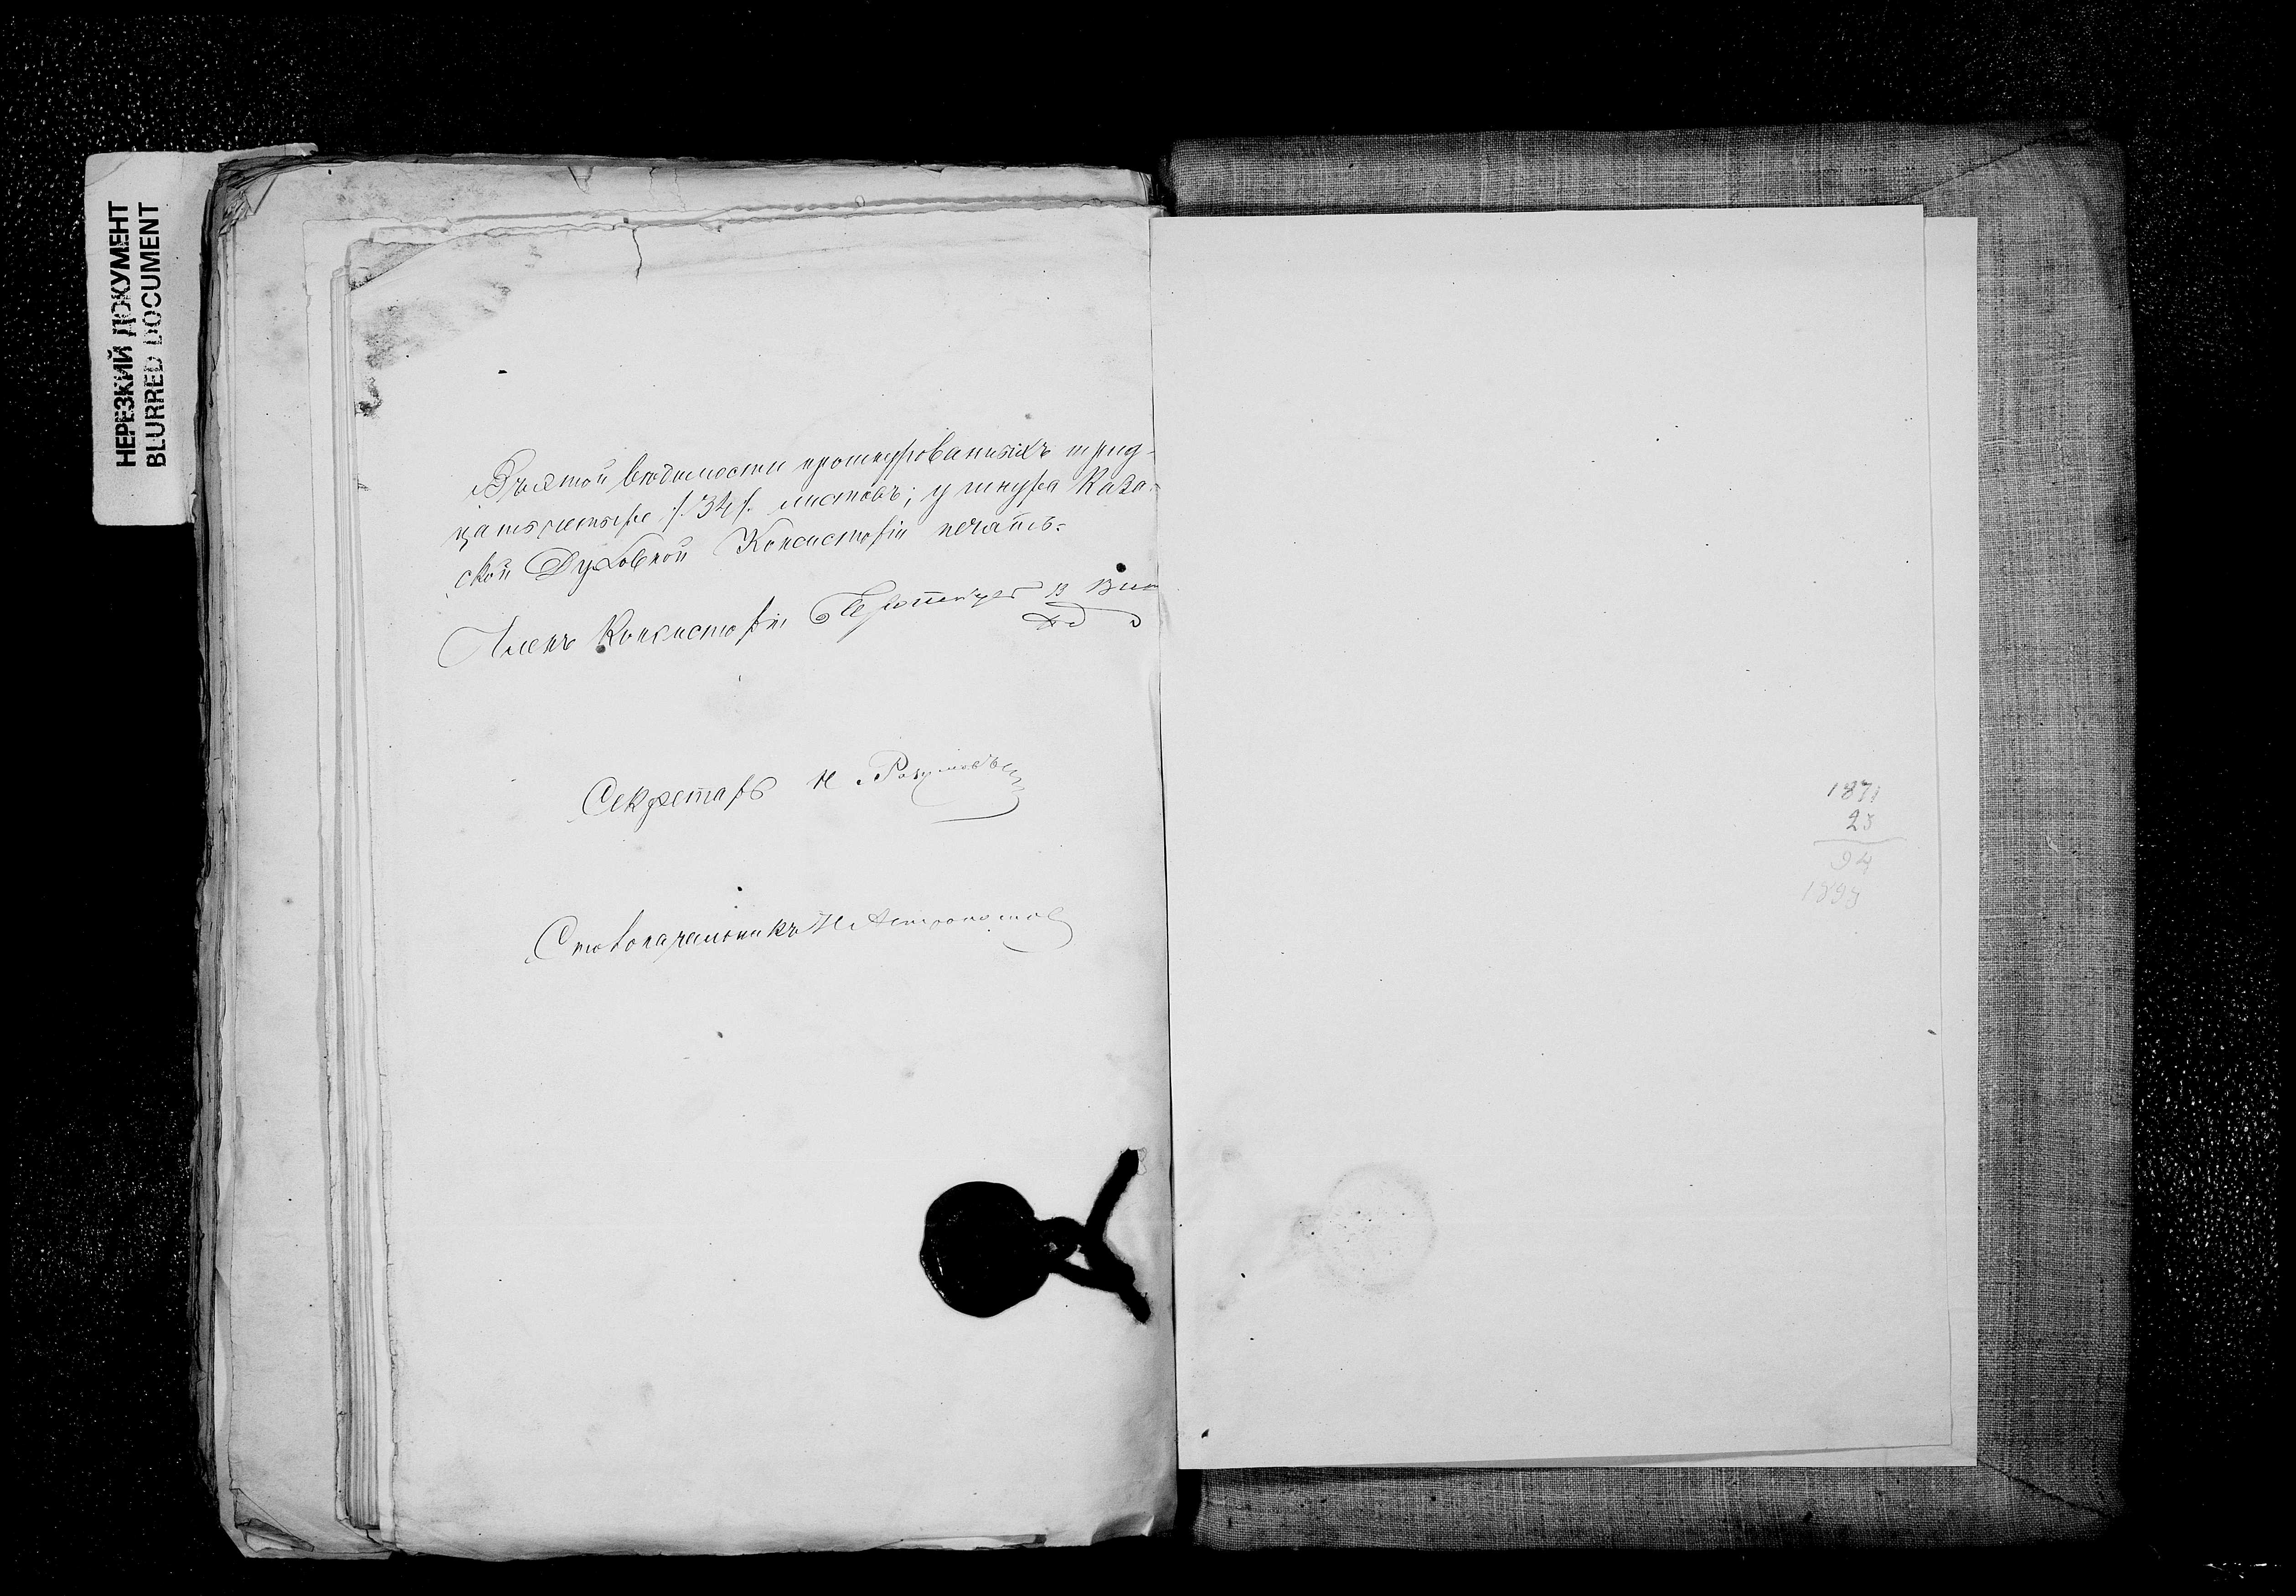 НЕРЕЗКИЙ ДОКУМЕНТ
BLURRED DOCUMENT
Въ этой вѣдомости прошнурованныхъ трид-
цать четыре /. 34 /. листовъ; у шнура Каза-
ской Духовной Консисторіи печать.
Членъ Консисторіи Протоіерей В.
Секретарь Н. Разумовъ
Столоначальникъ Н. Астрономов
1871
23
94
1893